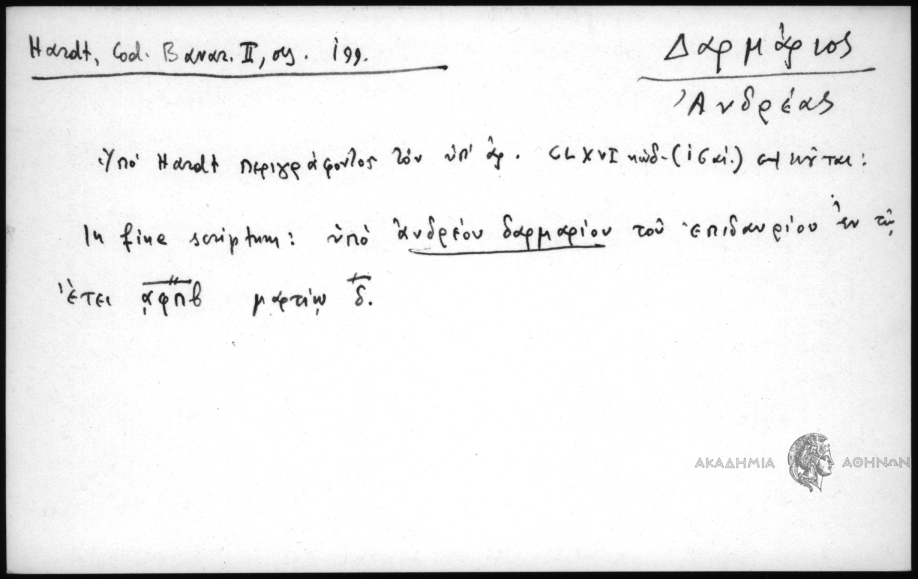 Hardt, Cod. Bavar. II, σς. 199.
Δαρμάριος
Ἀνδρέας
Ὑπὸ Hardt περιγράφοντος τὸν ὑπ' ἀρ. CLXVI κώδ. (ις αἰ.) σημ/ται:
In fine scriptum: ὑπὸ ἀνδρέου δαρμαρίου τοῦ ἐπιδαυρίου ἐν τῷ
ἔτει ͵αφπβ μαρτίῳ δ.
ΑΚΑΔΗΜΙΑ ΑΘΗΝΩΝ